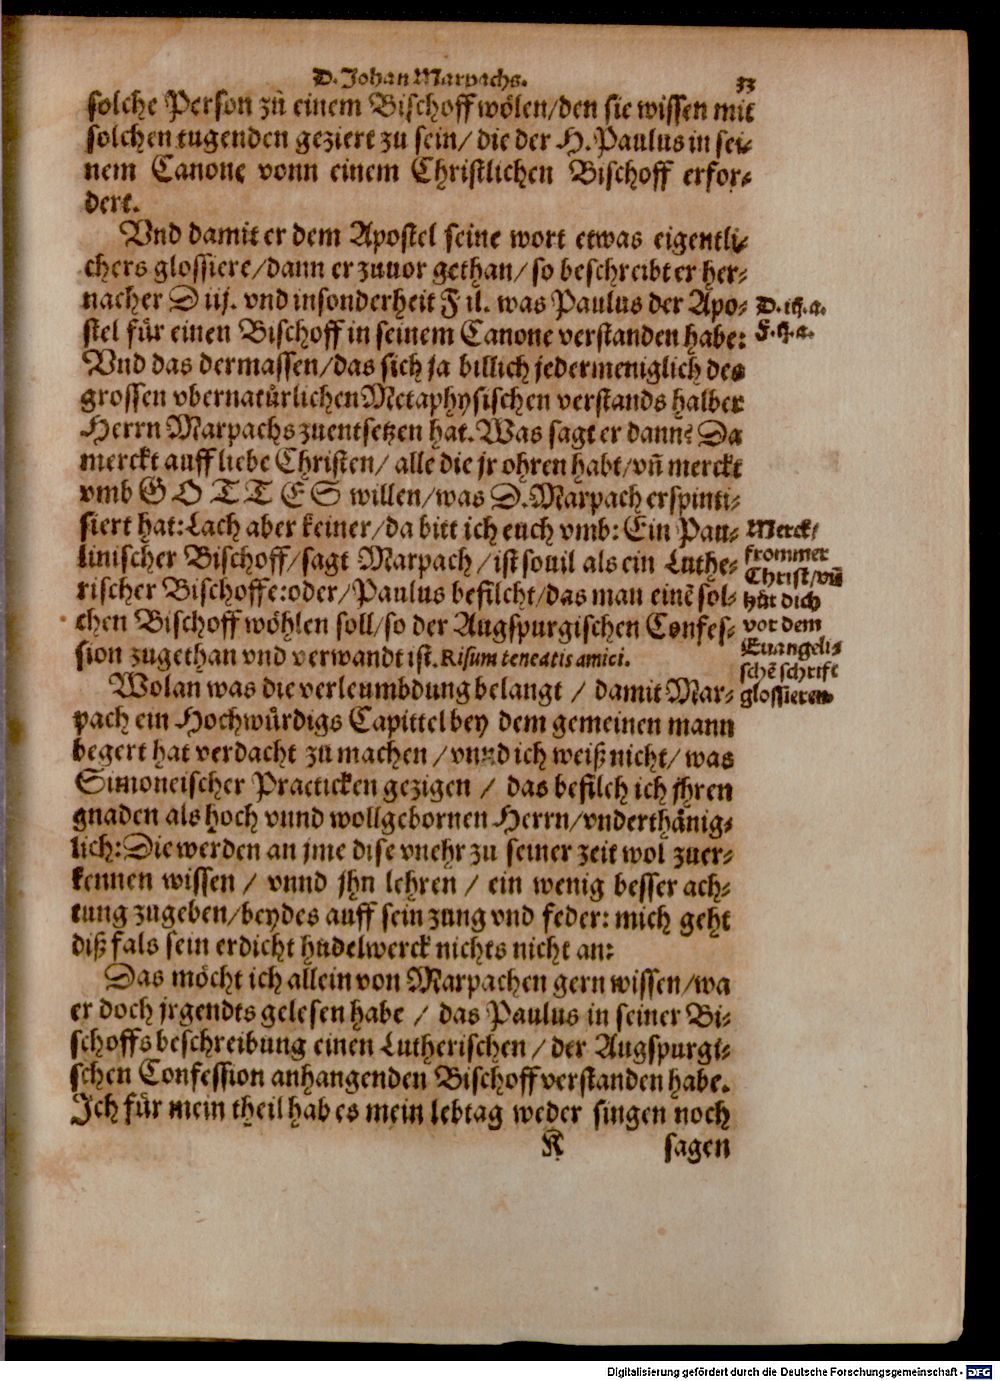 D. Johan Marpachs. 33
solche Person zů einem Bischoff wölen/den sie wissen mit
solchen tugenden geziert zu sein/ die der H. Paulus in sei-
nem Canone vonn einem Christlichen Bischoff erfor-
dert.
Vnd damit er dem Apostel seine wort etwas eigentli-
chers glossiere/dann er zuuor gethan/ so beschreibt er her-
nacher D iij. vnd insonderheit F ij. was Paulus der Apo-
stel für einen Bischoff in seinem Canone verstanden habe:
Vnd das dermassen/das sich ja billich jedermeniglich des
grossen vbernatürlichen Metaphysischen verstands halber
Herrn Marpachs zuentsetzen hat. Was sagt er dann? Da
merckt auff liebe Christen/ alle die jr ohren habt/vñ merckt
vmb GOTTES willen/was D. Marpach erspinti-
siert hat: Lach aber keiner/da bitt ich euch vmb: Ein Pau-
linischer Bischoff/sagt Marpach/ist souil als ein Luthe-
rischer Bischoffe: oder/Paulus befilcht/das man einē sol-
chen Bischoff wöhlen soll/so der Augspurgischen Confes-
sion zugethan vnd verwandt ist. Risum teneatis amici.
Wolan was die verleumbdung belangt / damit Mar-
pach ein Hochwürdigs Capittel bey dem gemeinen mann
begert hat verdacht zů machen/vnnd ich weiß nicht/ was
Simoneischer Practicken gezigen / das befilch ich jhren
gnaden als hoch vnnd wollgebornen Herrn/vnderthänig-
lich: Die werden an jme dise vnehr zu seiner zeit wol zuer-
kennen wissen / vnnd jhn lehren / ein wenig besser ach-
tung zugeben/beydes auff sein zung vnd feder: mich geht
diß fals sein erdicht hudelwerck nichts nicht an:
Das möcht ich allein von Marpachen gern wissen/wa
er doch jrgendts gelesen habe / das Paulus in seiner Bi-
schoffs beschreibung einen Lutherischen / der Augspurgi-
schen Confession anhangenden Bischoff verstanden habe.
Ich für mein theil hab es mein lebtag weder singen noch
K sagen
D. iij. a.
F. ij. a.
Merck/
frommer
Christ/vñ
hůt dich
vor dem
Euangeli-
schē schrift
glossieren
Digitalisierung gefördert durch die Deutsche Forschungsgemeinschaft - DFG